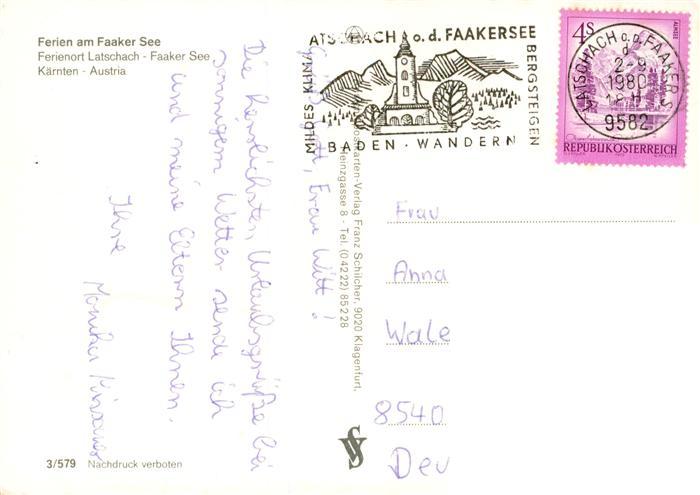 Ferien am Faaker See
Ferienort Latschach - Faaker See
Kärnten - Austria
ATSCHACH o.d. FAAKERSEE
MILDES KLIMA
BERGSTEIGEN
BADEN · WANDERN
4S
ALMSEE
REPUBLIK ÖSTERREICH
LATSCHACH o.d. FAAKERS
2.-9
1980
18 H
9582
Grüß Gott, Frau Witt!
Die herzlichsten Urlaubsgrüße bei
sonnigem Wetter sende ich
und meine Eltern Ihnen.
Ihre Monika
Postkarten-Verlag Franz Schilcher, 9020 Klagenfurt,
Heinzgasse 8 - Tel. (04222) 85228
Frau
Anna
Wale
8540
Dev
3/579 Nachdruck verboten